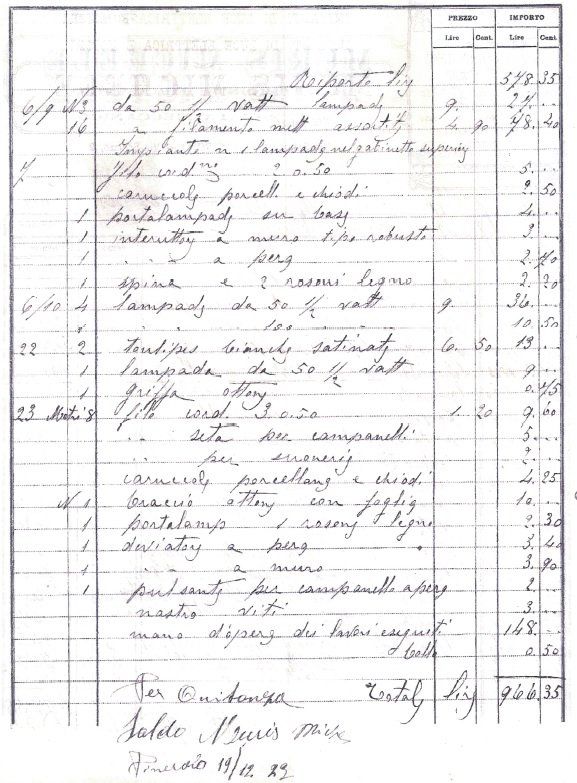 PREZZO IMPORTO
Lire Cent. Lire Cent.
Riporto lire 578.35
6/9 N 3 da 50 1/2 vatt lampade 9. 27. --
16 a filamento mett assortite 4. 90 78. 40
Impianto n 1 lampade nel gabinetto superiore
7 filo cord 2 0.50 5. --
carucole porcell. e chiodi 2. 50
1 portalampade su base 4. --
1 interuttore a muro tipo robusto 2. --
1 " " a pera 2. 70
1 spina e 2 rosoni legno 2. 20
6/10 4 lampade da 50 1/2 vatt 9. 36. --
1 " " 100 " 10. 50
22 2 toulipes bianche satinate 6. 50 13. --
1 lampada da 50 1/2 vatt 9. --
1 griffa ottone 0. 75
23 Metri 8 filo cord. 3 0.50 1. 20 9. 60
" " seta per campanelli 5. --
" " per suonerie 2. --
carucole porcellana e chiodi 4. 25
N 1 braccio ottone con foglie 10. --
1 portalamp 1 rosone legno 2. 30
1 deviatore a pera 3. 40
1 " " a muro 3. 90
1 pulsante per campanello a pera 2. --
nastro viti 3. --
mano d'opera dei lavori eseguiti 148. --
bollo 0. 50
Per Quitanza Totale lire 966. 35
Saldo
Pinerolo 19/12.22